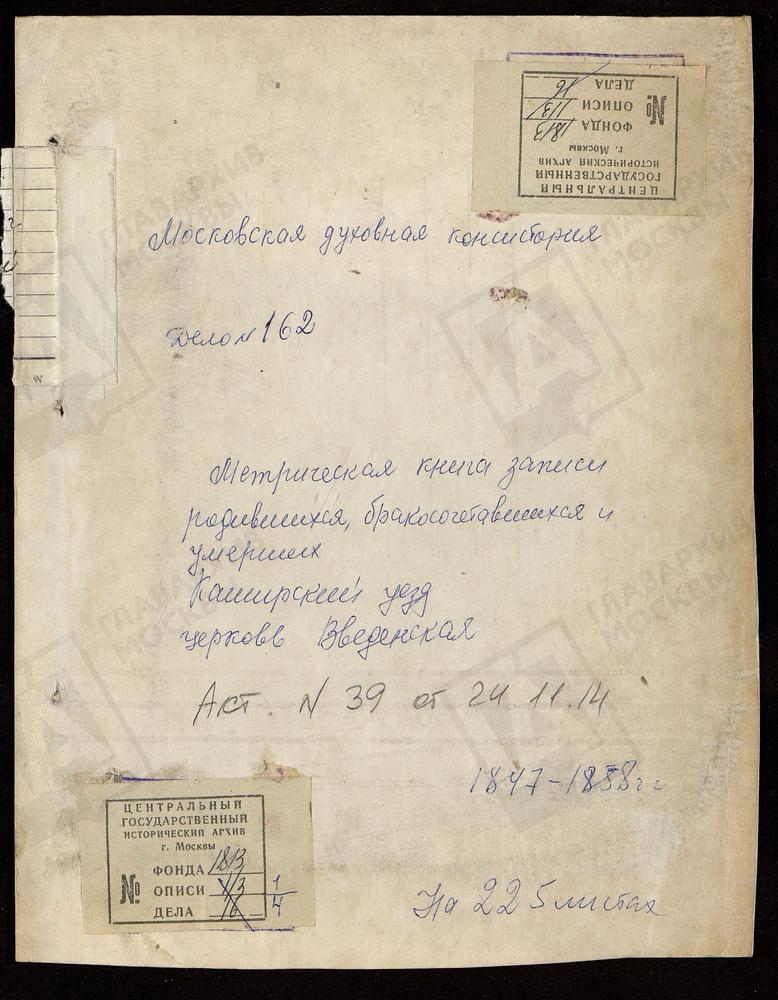 ЦЕНТРАЛЬНЫЙ
ГОСУДАРСТВЕННЫЙ
ИСТОРИЧЕСКИЙ АРХИВ
г. Москвы
№
ФОНДА 1813
ОПИСИ 1/3
ДЕЛА 16
Московская духовная консистория
Дело N 162
Метрическая книга записи
родившихся, бракосочетавшихся и
умерших
Каширский уезд
церковь Введенская
Акт. N 39 от 24.11.14
1847-1858 г г
ЦЕНТРАЛЬНЫЙ
ГОСУДАРСТВЕННЫЙ
ИСТОРИЧЕСКИЙ АРХИВ
г. Москвы
№
ФОНДА 1813
ОПИСИ 1/3 1
ДЕЛА 16 4
На 225 листах
ГЛАВАРХИВ
МОСКВЫ
ГЛАВАРХИВ
МОСКВЫ
ГЛАВАРХИВ
МОСКВЫ
ГЛАВАРХИВ
МОСКВЫ